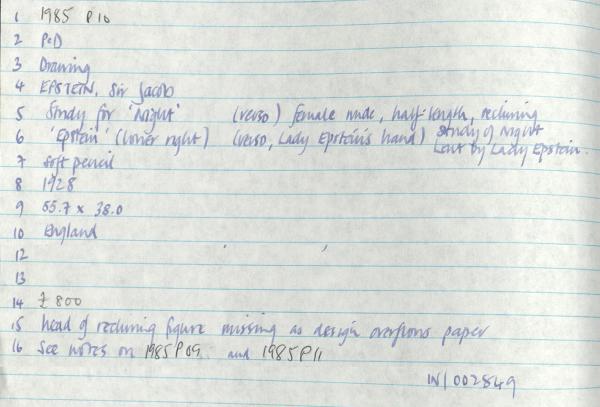 1 1985 P 10
2 P&D
3 Drawing
4 EPSTEIN, Sir Jacob
5 Study for 'Night' (verso) female nude, half-length, reclining
6 'Epstein' (lower right) (verso, Lady Epstein's hand) Study of Night
Lent by Lady Epstein.
7 soft pencil
8 1928
9 55.7 x 38.0
10 England
12
13
14 £800
15 head of reclining figure missing as design overflows paper
16 See notes on 1985 P 09 and 1985 P 11
IN/002849